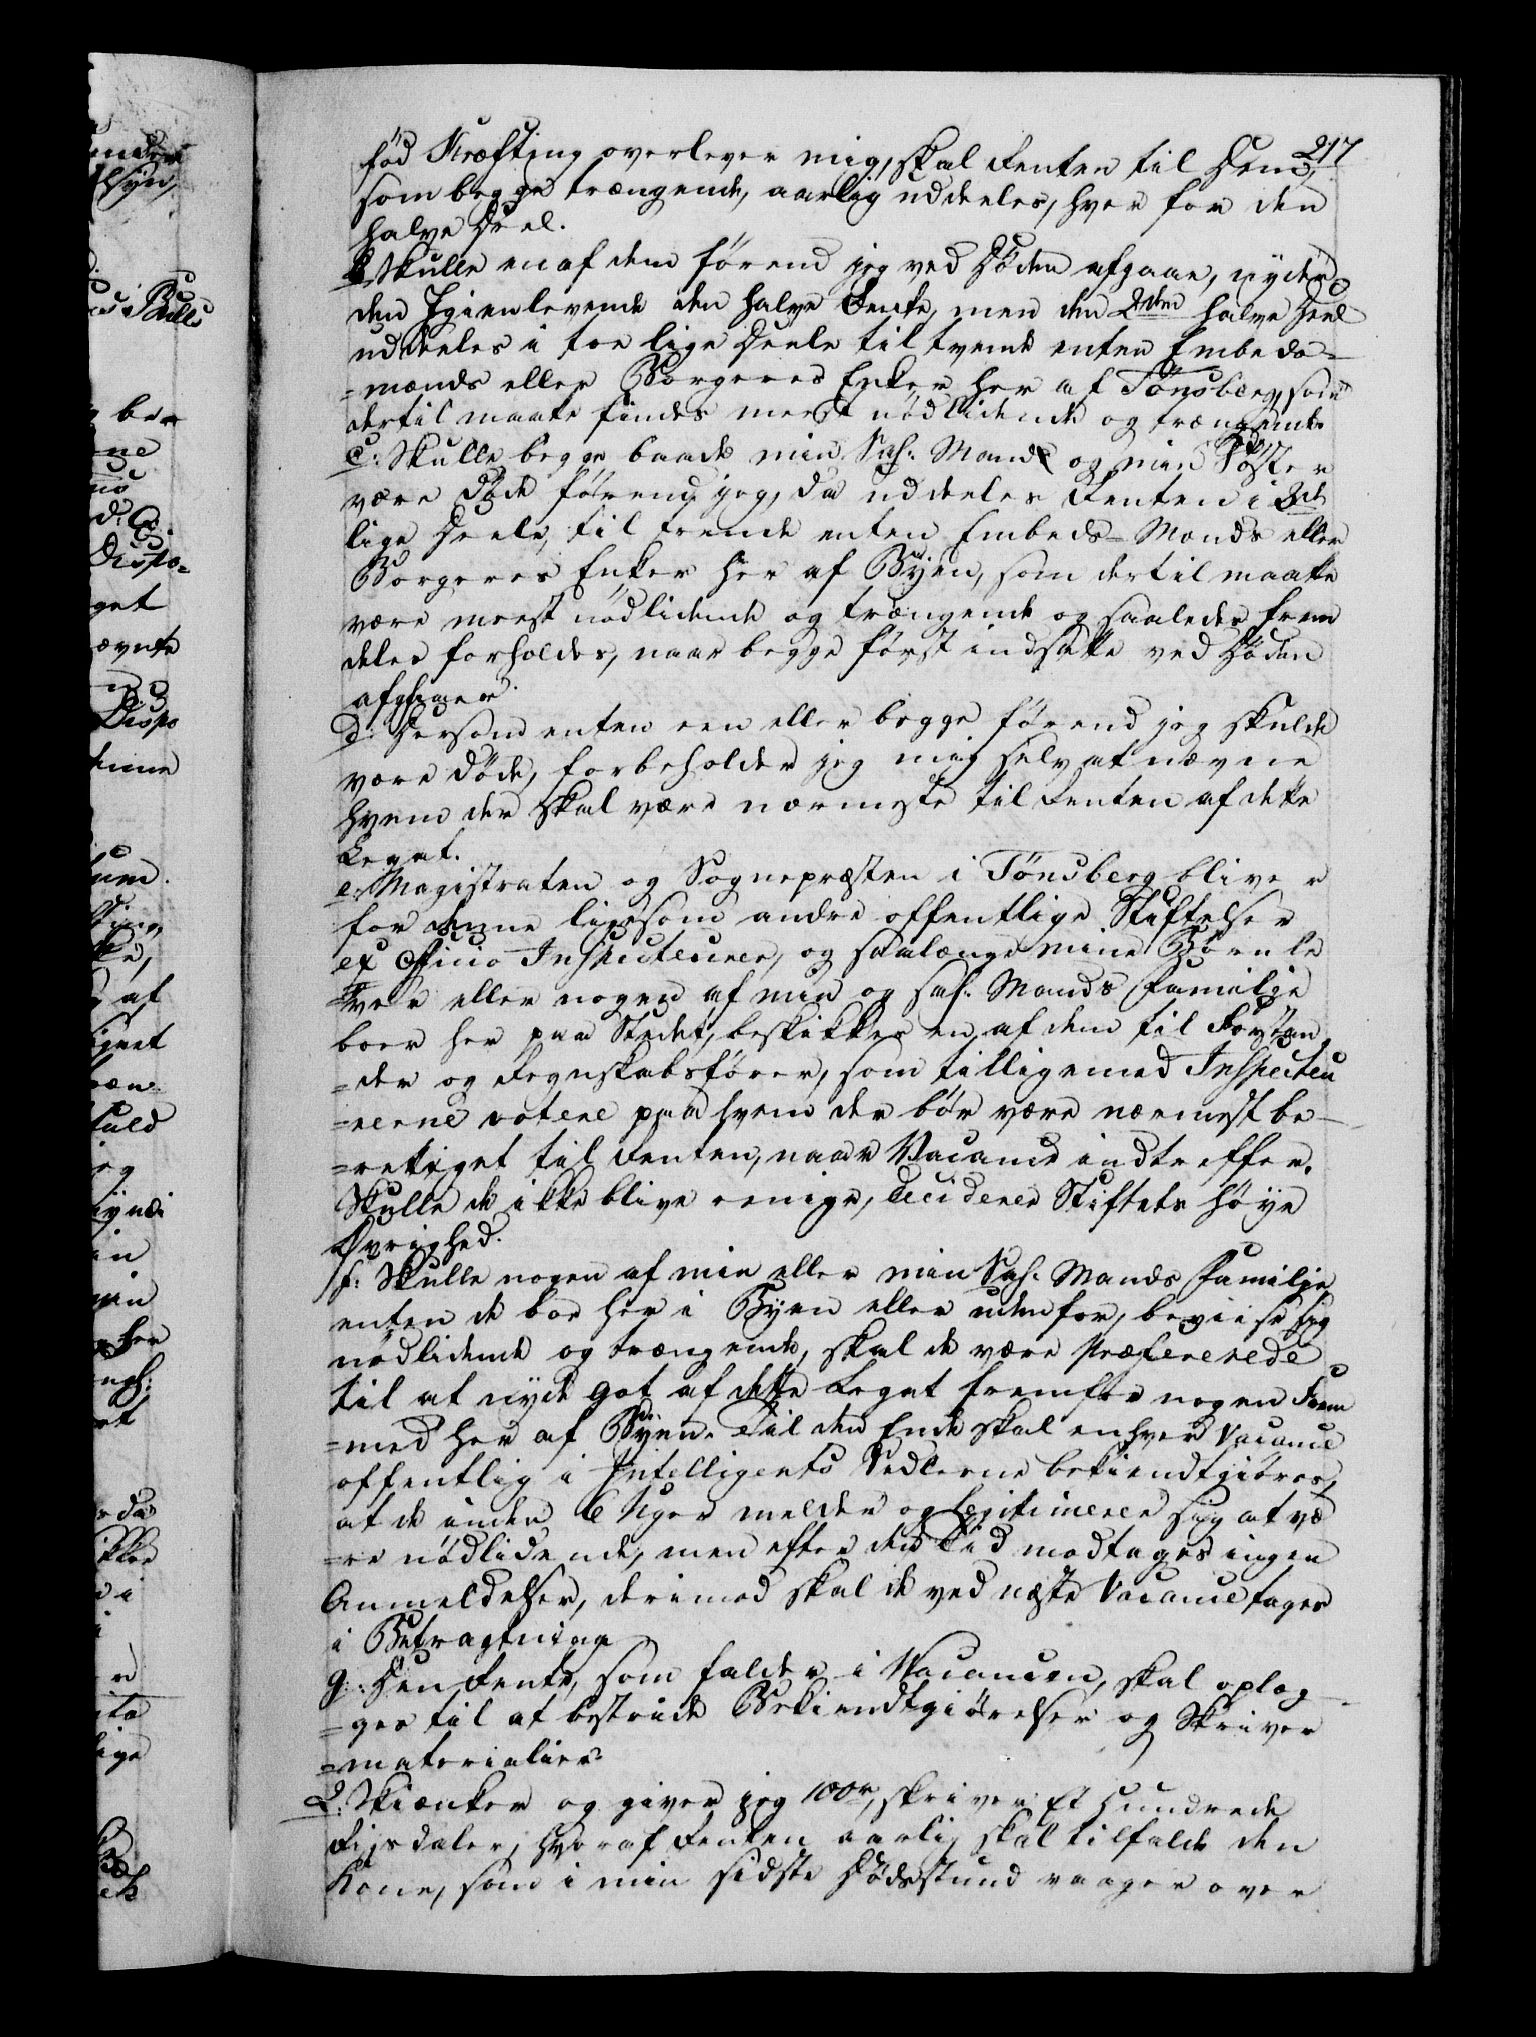 217
fød Kræfting overlever mig, skal Renten til Dem,
som begge trængende, aarlig uddeeles, hver for den
halve Deel.
b, Skulle en af dem førend jeg ved Døden afgaae, nyder
den Igienlevende den halve Rente, men den 2den halve Deel
uddeeles i toe lige Deele til tvende enten Embeds-
=mænds eller Borgeres Enker her af Tønsberg, som
dertil maatte findes meest nødlidende og trængende.
c: Skulle begge baade min Sal: Mands og min Søster
være døde førend jeg, da uddeeles Renten i 3de
lige Deele, til trende enten Embeds-Mænds eller
Borgeres Enker her af Byen, som dertil maatte
være meest nødlidende og trængende og saaledes frem
deles forholdes, naar begge først indsatte ved Døden
afgaaer.
d: Dersom enten een eller begge førend jeg skulde
være døde, forbeholder jeg mig selv at nævne
hvem der skal være nærmeste til Renten af dette
Legat.
e: Magistraten og Sognepræsten i Tønsberg bliver
for denne ligesom andre offentlige Stiftelser
ex officio Inspecteurer, og saalænge mine Børn le
=ver eller nogen af min og sal: Mands Familje
boer her paa Stedet, beskikkes en af dem til Forstan
=der og Regnskabsfører, som tilligemed Inspecteu
=rerne votere paa hvem der bør være nærmest be-
=rettiget til Renten, naar Vacance indtreffer.
Skulle de ikke blive eenige, deciderer Stiftets høye
Øvrighed.
f: Skulle nogen af min eller min Sal: Mands Familje
enten de boe her i Byen eller udenfor, beviise sig
nødlidende og trængende, skal de være præfererede
til at nyde got af dette Legat fremfor nogen Frem
=med her af Byen. Til den Ende skal enhver Vacance
offentlig i Intelligents Sedlerne bekiendtgiøres,
at de inden 6 Uger melder og legitimerer sig at væ
=re nødlidende, men efter den Tid modtages ingen
Anmeldelser, derimod skal de ved næste Vacance tages
i Betragtning
g: Den Rente, som falder i Vacancen, skal oplæg-
=ges til at bestride Bekiendtgiørelser og Skriver
=materialier.
2: Skiænker og giver jeg 100 rd, skriver Et Hundrede
Rijsdaler, hvoraf Renten aarlig skal tilfalde den
Kone, som i min sidste Dødsstund vaager over